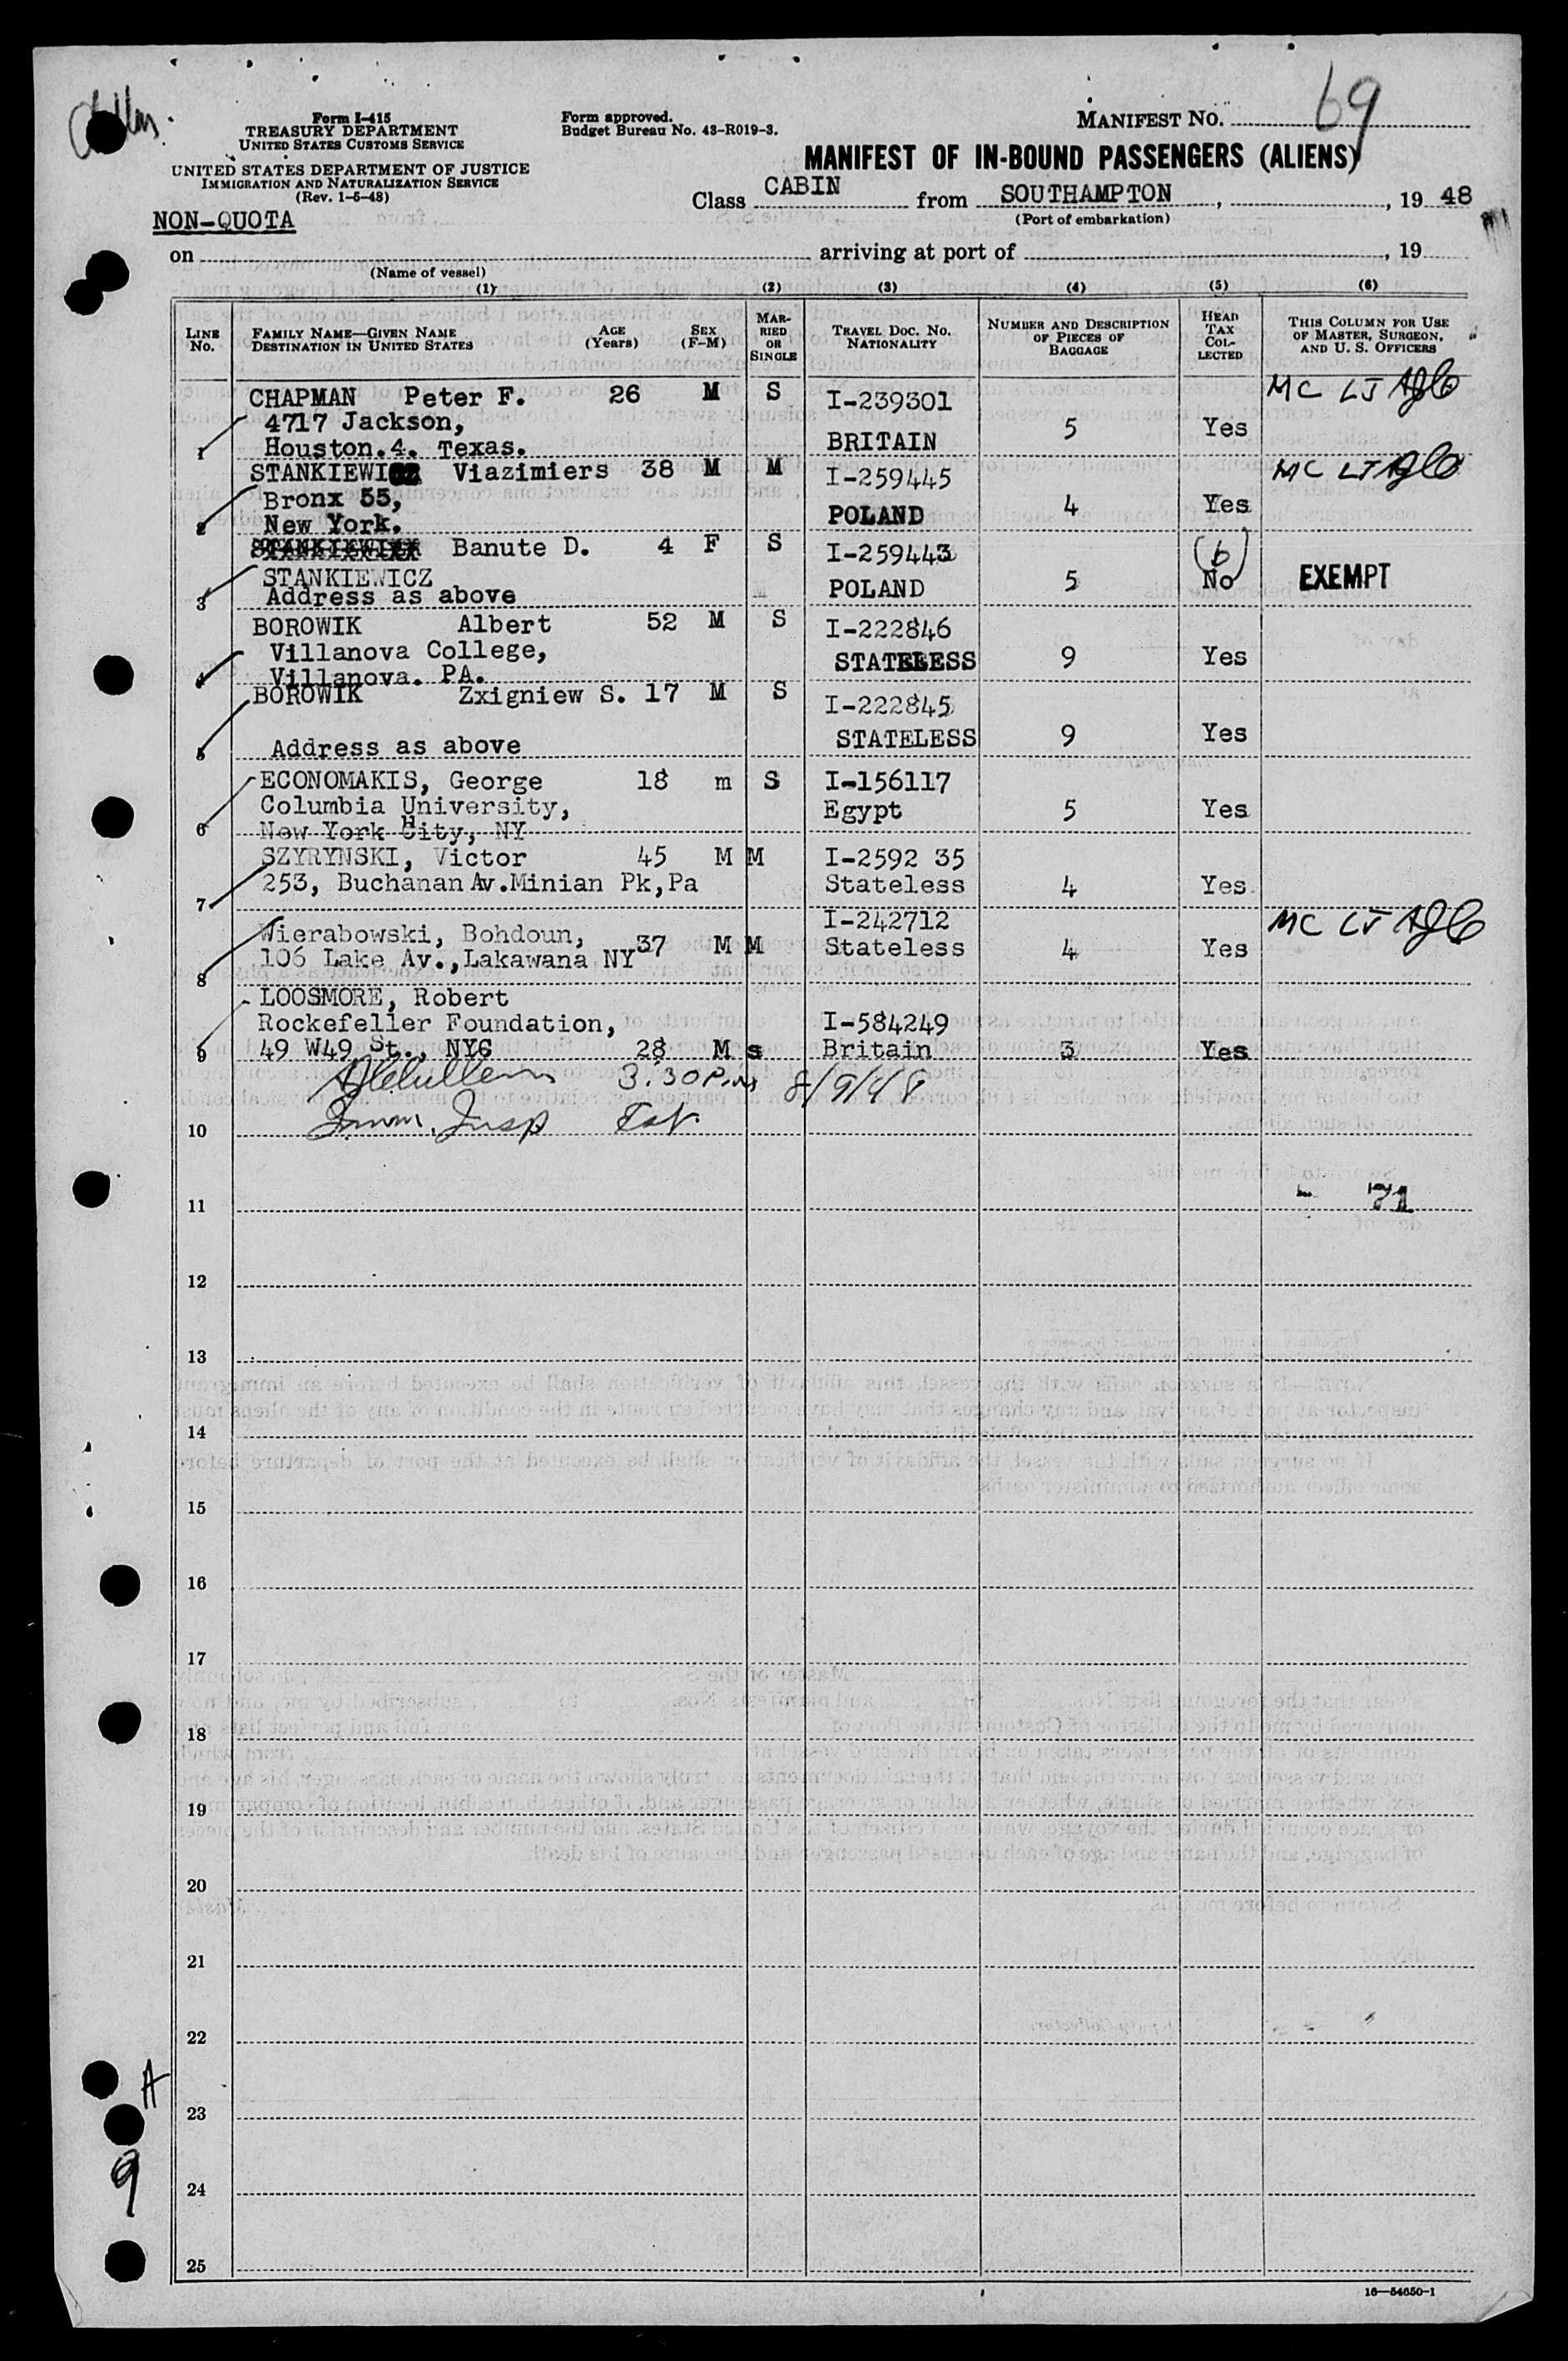 69
Form I-415
TREASURY DEPARTMENT
UNITED STATES CUSTOMS SERVICE
UNITED STATES DEPARTMENT OF JUSTICE
IMMIGRATION AND NATURALIZATION SERVICE
(Rev. 1-5-48)
Form approved.
Budget Bureau No. 43-R019-3.
MANIFEST NO.
MANIFEST OF IN-BOUND PASSENGERS (ALIENS)
Class CABIN from SOUTHAMPTON, , 19 48
(Port of embarkation)
NON-QUOTA
on arriving at port of , 19
(Name of vessel)
(1) (2) (3) (4) (5) (6)
LINE No. FAMILY NAME—GIVEN NAME DESTINATION IN UNITED STATES AGE (Years) SEX (F-M) MARRIED OR SINGLE TRAVEL DOC. NO. NATIONALITY NUMBER AND DESCRIPTION OF PIECES OF BAGGAGE HEAD TAX COLLECTED THIS COLUMN FOR USE OF MASTER, SURGEON, AND U. S. OFFICERS
CHAPMAN Peter F. 26 M S I-239301 MC LJ
4717 Jackson, 5 Yes
1 Houston.4. Texas. BRITAIN
STANKIEWICZ Viazimiers 38 M M I-259445 MC LJ
Bronx 55, 4 Yes
2 New York. POLAND
Banute D. 4 F S I-259443 (6)
STANKIEWICZ 5 No EXEMPT
3 Address as above POLAND
BOROWIK Albert 52 M S I-222846
Villanova College, STATELESS 9 Yes
4 Villanova. PA.
BOROWIK Zxigniew S. 17 M S I-222845
STATELESS 9 Yes
5 Address as above
ECONOMAKIS, George 18 m S I-156117
Columbia University, Egypt 5 Yes
6 New York City, NY
SZYRYNSKI, Victor 45 M M I-2592 35
253, Buchanan Av.Minian Pk,Pa Stateless 4 Yes
7
I-242712 MC LJ
Wierabowski, Bohdoun, 37 M M Stateless 4 Yes
106 Lake Av.,Lakawana NY
8
LOOSMORE, Robert
Rockefeller Foundation, I-584249
9 49 W49 St., NYC 28 M s Britain 3 Yes
3:30 P.M 8/9/48
10 Imm. Insp
11 71
12
13
14
15
16
17
18
19
20
21
22
A
23
9
24
25
16—54650-1